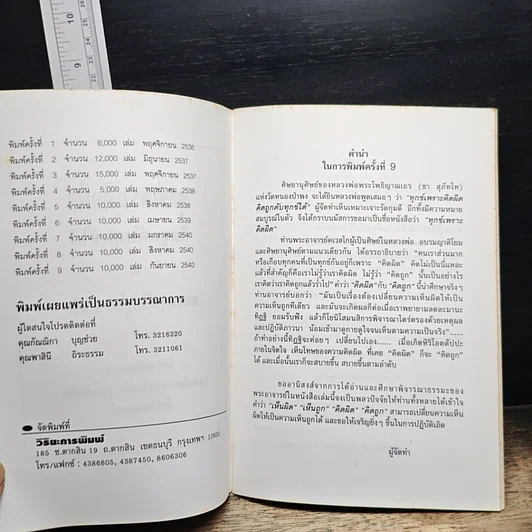 10
9
พิมพ์ครั้งที่ 1 จำนวน 6,000 เล่ม พฤศจิกายน 2536
พิมพ์ครั้งที่ 2 จำนวน 12,000 เล่ม มิถุนายน 2537
พิมพ์ครั้งที่ 3 จำนวน 10,000 เล่ม พฤศจิกายน 2537
พิมพ์ครั้งที่ 4 จำนวน 5,000 เล่ม พฤษภาคม 2538
พิมพ์ครั้งที่ 5 จำนวน 10,000 เล่ม สิงหาคม 2538
พิมพ์ครั้งที่ 6 จำนวน 10,000 เล่ม เมษายน 2539
พิมพ์ครั้งที่ 7 จำนวน 10,000 เล่ม มกราคม 2540
พิมพ์ครั้งที่ 8 จำนวน 10,000 เล่ม สิงหาคม 2540
พิมพ์ครั้งที่ 9 จำนวน 10,000 เล่ม กันยายน 2540
พิมพ์เผยแพร่เป็นธรรมบรรณาการ
ผู้ใดสนใจโปรดติดต่อที่
คุณกัณณิกา บุญช่วย โทร. 3216320
คุณพาสินี ถิระธรรม โทร. 3211061
จัดพิมพ์ที่
วิริยะการพิมพ์
185 ซ.ตากสิน 19 ถ.ตากสิน เขตธนบุรี กรุงเทพฯ 10600
โทร/แฟกซ์ : 4386805, 4387450, 8606306
คำนำ
ในการพิมพ์ครั้งที่ 9
ศิษยานุศิษย์ของหลวงพ่อพระโพธิญาณเถร (ชา สุภัทโท)
แห่งวัดหนองป่าพง จะได้ยินหลวงพ่อพูดเสมอๆ ว่า "ทุกข์เพราะคิดผิด
คิดถูกดับทุกข์ได้" ผู้จัดทำเห็นเหมาะเจาะรัดกุมดี อีกทั้งมีความหมาย
สมบูรณ์ในตัว จึงได้กราบนมัสการขอมาเป็นชื่อหนังสือว่า "ทุกข์เพราะ
คิดผิด"
ท่านพระอาจารย์คเวสโกผู้เป็นศิษย์ในหลวงพ่อ อบรมญาติโยม
และศิษยานุศิษย์ตามแนวเดียวกัน ได้อรรถาธิบายว่า "คนเราส่วนมาก
หรือเกือบทุกคนที่เป็นทุกข์กันอยู่ก็เพราะ "คิดผิด" คิดไม่เป็นนี่แหละ
แล้วที่สำคัญก็คือเราไม่รู้ว่าเราคิดผิด ไม่รู้ว่า "คิดถูก" นั้นเป็นอย่างไร
เราคิดว่าเราคิดถูกแล้วร่ำไป" คำว่า "คิดผิด" กับ "คิดถูก" นี้น่าศึกษาจริงๆ
ท่านอาจารย์บอกว่า "มันเป็นเรื่องต้องเปลี่ยนความเห็นผิดให้เป็น
ความเห็นถูกทีเดียว และมันจะเกิดผลก็ต่อเมื่อเราพยายามลดละมานะ
ทิฐิ ยอมรับฟัง แล้วก็โยนิโสมนสิการพิจารณาไตร่ตรองด้วยเหตุผล
และปฏิบัติภาวนา น้อมเข้ามาดูกายดูใจจนเห็นตามความเป็นจริง"
ถ้าทำอย่างนี้ทิฐิจะค่อยๆ เปลี่ยนไปเอง..... เมื่อเกิดหิริโอตตัปปะ
ภายในจิตใจ เห็นโทษของความคิดผิด ที่เคย "คิดผิด" ก็จะ "คิดถูก"
ได้ และเมื่อนั้นเราก็จะสบายขึ้น สบายขึ้นตามลำดับ
ขออานิสงส์จากการได้อ่านและศึกษาพิจารณาธรรมะของ
พระอาจารย์ในหนังสือเล่มนี้จงเป็นพลวปัจจัยให้ท่านทั้งหลายได้เข้าใจ
คำว่า "เห็นผิด" "เห็นถูก" "คิดผิด" "คิดถูก" สามารถเปลี่ยนความเห็น
ผิดให้เป็นความเห็นถูกได้ และขอให้เจริญยิ่งๆ ขึ้นในการปฏิบัติเถิด
ผู้จัดทำ